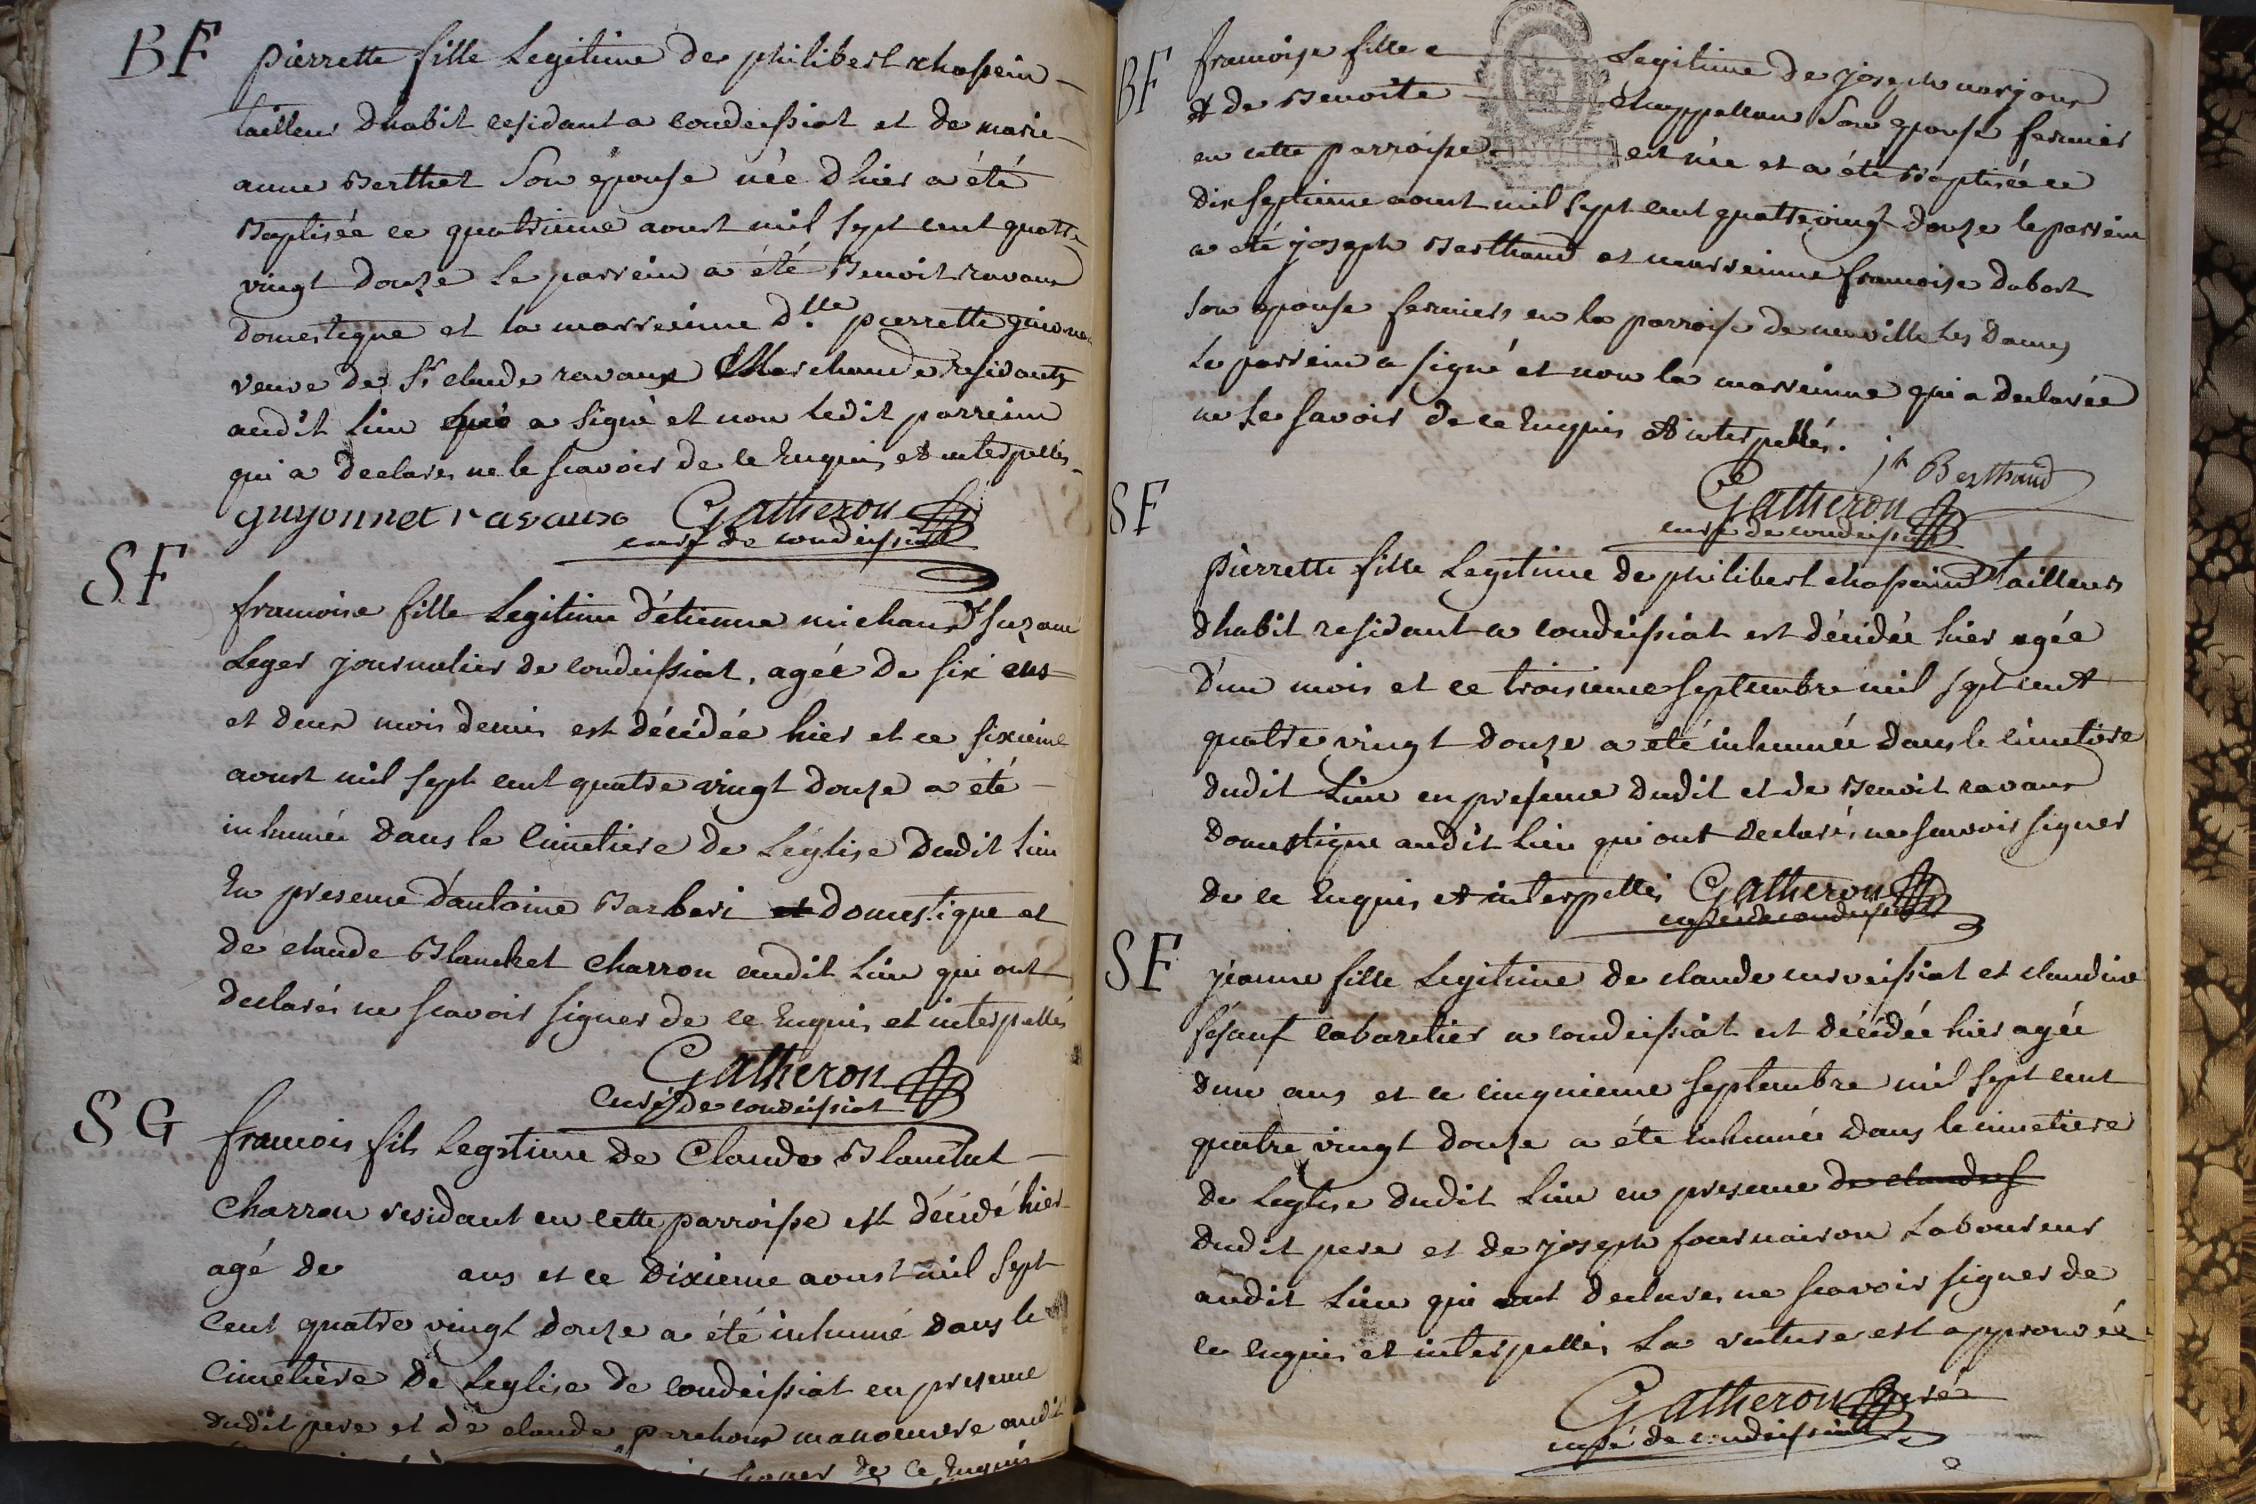 BF
pierrette fille Legitime de philibert chassein
tailleur dhabit residant a condeissiat et de marie
anne Berthet Son epouse née dhier a été
Baptisée ce quatrieme aoust mil sept cent quatre
vingt douze le parrein a été Benoit ravaux
domestique et la marreinne Dlle pierrette
veuve de Sr claude ravaux Marchande residante
audit lieu qui a signé et non ledit parrein
qui a declarer ne le scavoir de ce Enquis et interpellés
guyonnet ravaux Gatheron
curé de condeissiat
SF
francoise fille Legitime d'étienne michaud & suzane
Leger journalier de condeissiat, agée de six ans
et deux mois demis est décédée hier et ce sixieme
aoust mil sept cent quatre vingt douze a été
inhumée dans le Cimetiere de Léglise dudit lieu
En presence d'antoine Barberi domestique et
de claude Blanchet charron audit Lieu qui ont
declarés ne scavoir signer de ce Enquis et interpellés
Gatheron
Curé de condeissiat
SG
francois fils Legitime de Claude
Charron residant en cette parroisse est décédé hier
agé de ans et ce Dixieme aoust mil Sept
Cent quatre vingt douze a été inhumé dans le
Cimetière de Leglise de condeissiat en presence
dudit pere et de claude manoeuvre audit
signer de ce Enquis
BF
francoise fille Legitime de joseph
& de Benoite chappellan Son epouse fermier
en cette parroisse est née et a été Baptisée ce
dix septieme aoust mil sept cent quatre vingt douze le parrein
a été joseph Berthaud et marreinne francoise dubost
son epouse fermiers en la parroisse de neuville les dames
Le parrein a signé et non la marreinne qui a declarée
ne le savoir de ce Enquis et interpellés.
jh Berthaud
Gatheron
curé de condeissiat
SF
pierrette fille Legitime de philibert chassein tailleur
dhabit residant a condeissiat est décédée hier agée
d'un mois et ce troisieme septembre mil sept cent
quatre vingt douze a été inhumée dans le cimetiere
dudit Lieu en presence dudit et de Benoit ravaux
domestique audit Lieu qui ont declarés ne savoir signer
de ce Enquis et interpellés Gatheron
curé de condeissiat
SF
jeanne fille Legitime de claude curveissiat et claudine
cabaretier a condeissiat est décédée hier agée
dun ans et ce cinquieme septembre mil sept cent
quatre vingt douze a été inhumée dans le cimetiere
de Leglise dudit Lieu en presence
dudit pere et de joseph fournaison Laboureur
audit Lieu qui ont declarer ne scavoir signer de
ce enquis et interpellés La rature est approuvée
Gatheron curé
curé de condeissiat